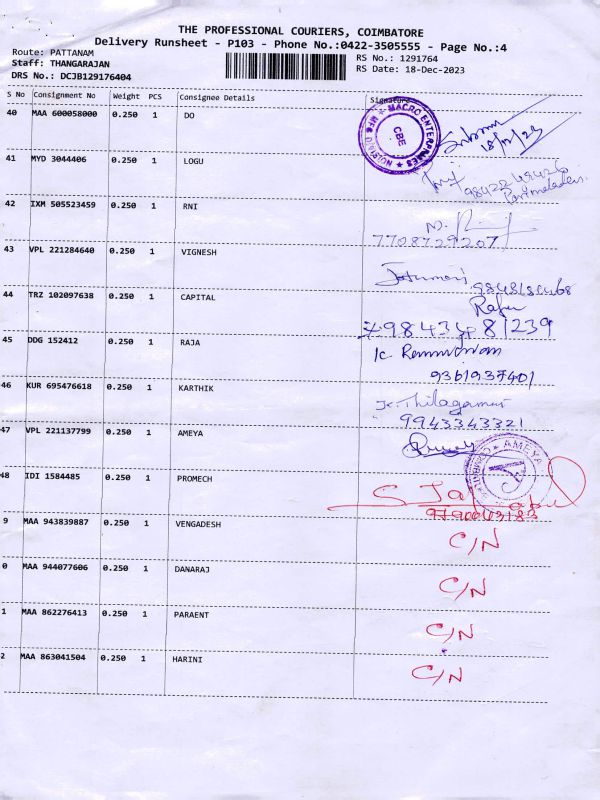 THE PROFESSIONAL COURIERS, COIMBATORE
Delivery Runsheet - P103 - Phone No.:0422-3505555 - Page No.:4
Route: PATTANAM
RS No.: 1291764
Staff: THANGARAJAN
RS Date: 18-Dec-2023
DRS No.: DCJB129176404
S No Consignment No Weight PCS Consignee Details Signature
40 MAA 600058000 0.250 1 DO
MACRO ENTERPRISES CBE
41 MYD 3044406 0.250 1 LOGU
42 IXM 505523459 0.250 1 RNI
7708729207
43 VPL 221284640 0.250 1 VIGNESH
44 TRZ 102097638 0.250 1 CAPITAL
45 DDG 152412 0.250 1 RAJA
9361937401
46 KUR 695476618 0.250 1 KARTHIK
9943343321
47 VPL 221137799 0.250 1 AMEYA
AMEYA
48 IDI 1584485 0.250 1 PROMECH
9790043183
9 MAA 943839887 0.250 1 VENGADESH C/N
0 MAA 944077606 0.250 1 DANARAJ C/N
1 MAA 862276413 0.250 1 PARAENT C/N
2 MAA 863041504 0.250 1 HARINI C/N